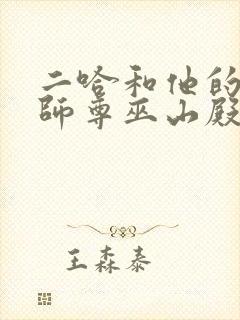 二哈和他的
师尊巫山殿
王森泰